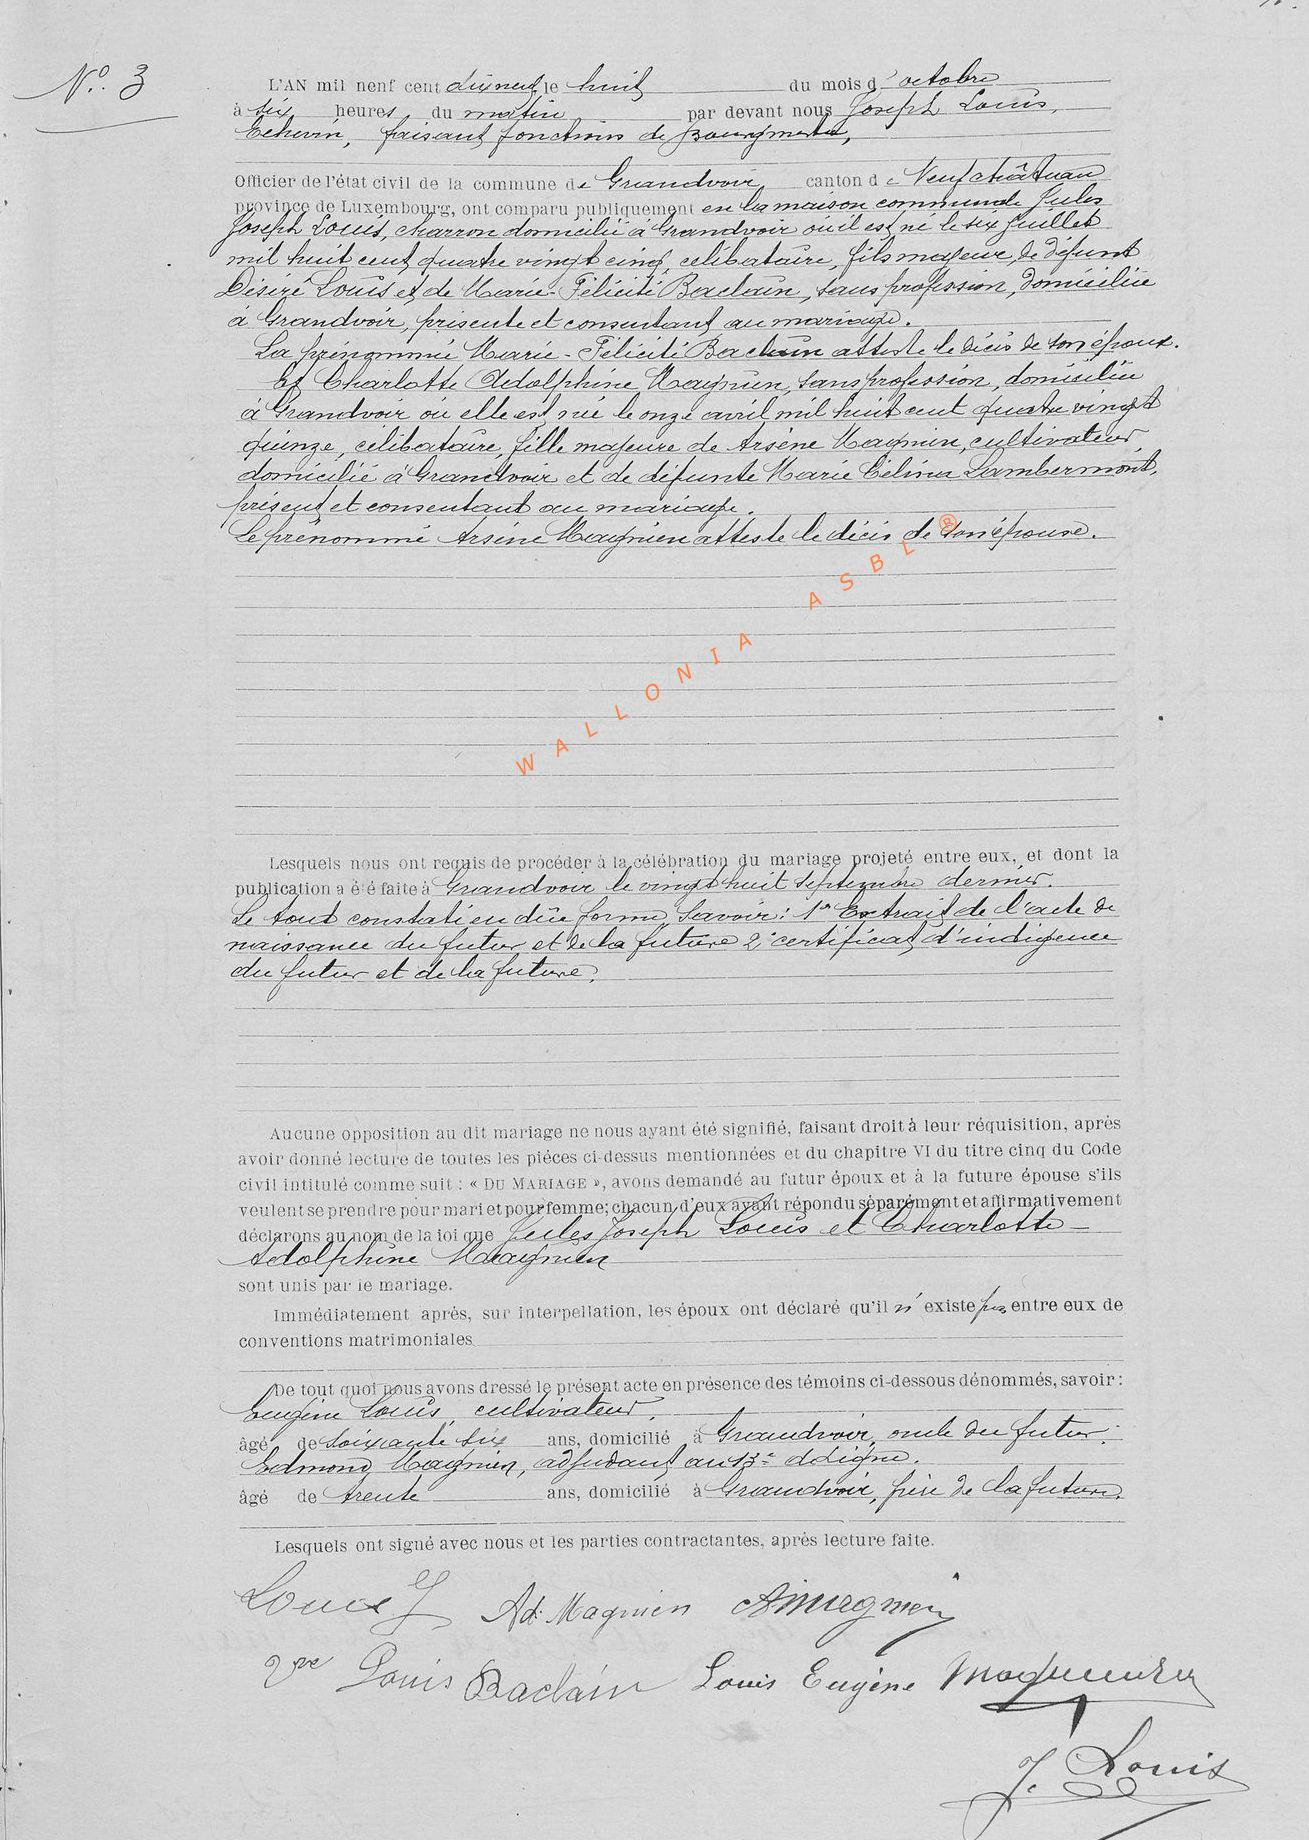 N°. 3
L'AN mil neuf cent dix neuf le huit du mois d'octobre
à six heures du matin par devant nous Joseph Louis,
Echevin, faisant fonctions de Bourgmestre,
Officier de l'état civil de la commune de Grandvoir canton de Neufchâteau
province de Luxembourg, ont comparu publiquement en la maison communale Jules
Joseph Louis, charron domicilié à Grandvoir où il est né le six Juillet
mil huit cent quatre vingt cinq, célibataire, fils majeur de défunt
Désiré Louis et de Marie-Félicité Baclain, sans profession, domiciliée
à Grandvoir, présente et consentant au mariage.
La prénommée Marie-Félicité Baclain atteste le décès de son époux.
Et Charlotte Adolphine Magnien, sans profession, domiciliée
à Grandvoir où elle est née le onze avril mil huit cent quatre vingt
quinze, célibataire, fille majeure de Arsène Magnien, cultivateur,
domicilié à Grandvoir et de défunte Marie Célina Lambermont,
présent et consentant au mariage.
Le prénommé Arsène Magnien atteste le décès de son épouse.
WALLONIA ASBL ®
Lesquels nous ont requis de procéder à la célébration du mariage projeté entre eux, et dont la
publication a été faite à Grandvoir le vingt huit septembre dernier.
Le tout constaté en dûe forme, Savoir: 1° Extrait de l'acte de
naissance du futur et de la future 2° certificat d'indigence
du futur et de la future.
Aucune opposition au dit mariage ne nous ayant été signifié, faisant droit à leur réquisition, après
avoir donné lecture de toutes les pièces ci-dessus mentionnées et du chapitre VI du titre cinq du Code
civil intitulé comme suit : « DU MARIAGE », avons demandé au futur époux et à la future épouse s'ils
veulent se prendre pour mari et pour femme; chacun d'eux ayant répondu séparément et affirmativement
déclarons au nom de la loi que Jules Joseph Louis et Charlotte-
Adolphine Magnien
sont unis par le mariage.
Immédiatement après, sur interpellation, les époux ont déclaré qu'il n'existe pas entre eux de
conventions matrimoniales
De tout quoi nous avons dressé le présent acte en présence des témoins ci-dessous dénommés, savoir :
Eugène Louis, cultivateur,
âgé de soixante six ans, domicilié à Grandvoir, oncle du futur;
Edmond Magnien, adjudant au 13e de ligne.
âgé de trente ans, domicilié à Grandvoir, frère de la future.
Lesquels ont signé avec nous et les parties contractantes, après lecture faite.
Louis J Ad. Magnien A. Magnien
Vve Louis Baclain Louis Eugène Magnien
J. Louis